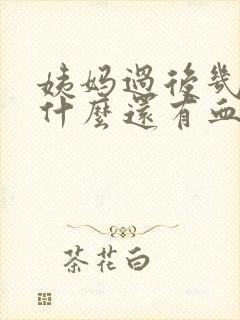 姨妈過後幾
什麼還有血
茶花白